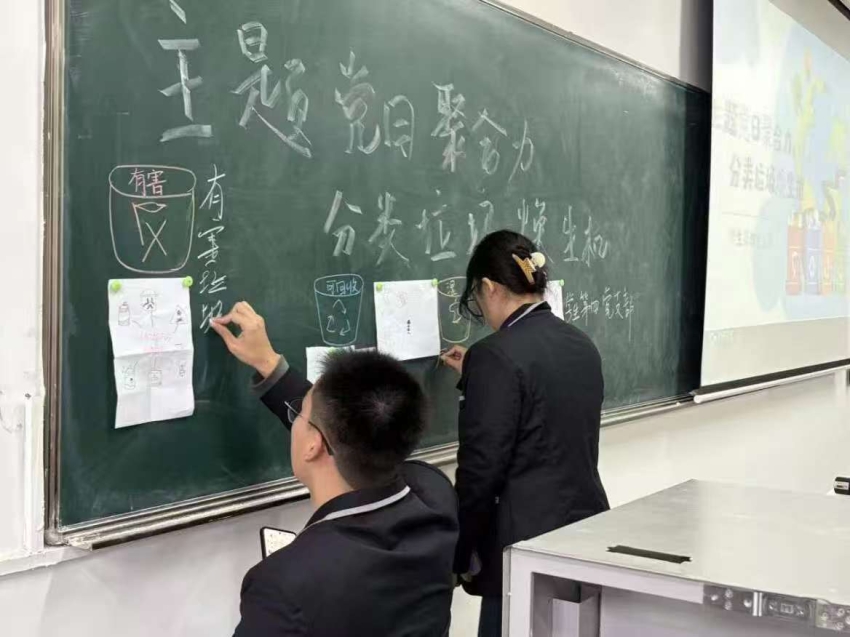 主题党日聚合力
分类垃圾焕生机
有害
有害垃圾
可回收
湿
学生第四党支部
主题党日聚合力
分类垃圾焕生